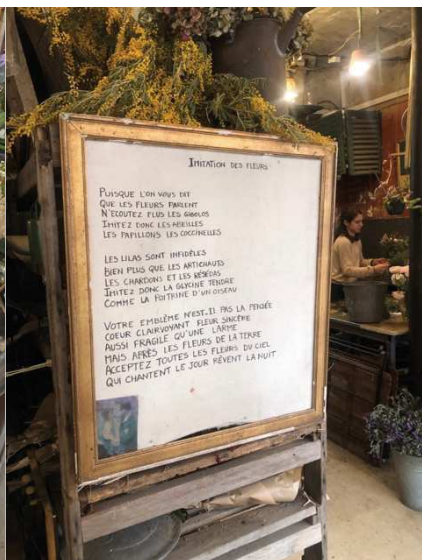 IMITATION DES FLEURS
PUISQUE L'ON VOUS DIT
QUE LES FLEURS PARLENT
N'ECOUTEZ PLUS LES GIGOLOS
IMITEZ DONC LES ABEILLES
LES PAPILLONS LES COCCINELLES
LES LILAS SONT INFIDÈLES
BIEN PLUS QUE LES ARTICHAUTS
LES CHARDONS ET LES RÉSÉDAS
IMITEZ DONC LA GLYCINE TENDRE
COMME LA POITRINE D'UN OISEAU
VOTRE EMBLÈME N'EST-IL PAS LA PENSÉE
COEUR CLAIRVOYANT FLEUR SINCÈRE
AUSSI FRAGILE QU'UNE LARME
MAIS APRÈS LES FLEURS DE LA TERRE
ACCEPTEZ TOUTES LES FLEURS DU CIEL
QUI CHANTENT LE JOUR RÊVENT LA NUIT